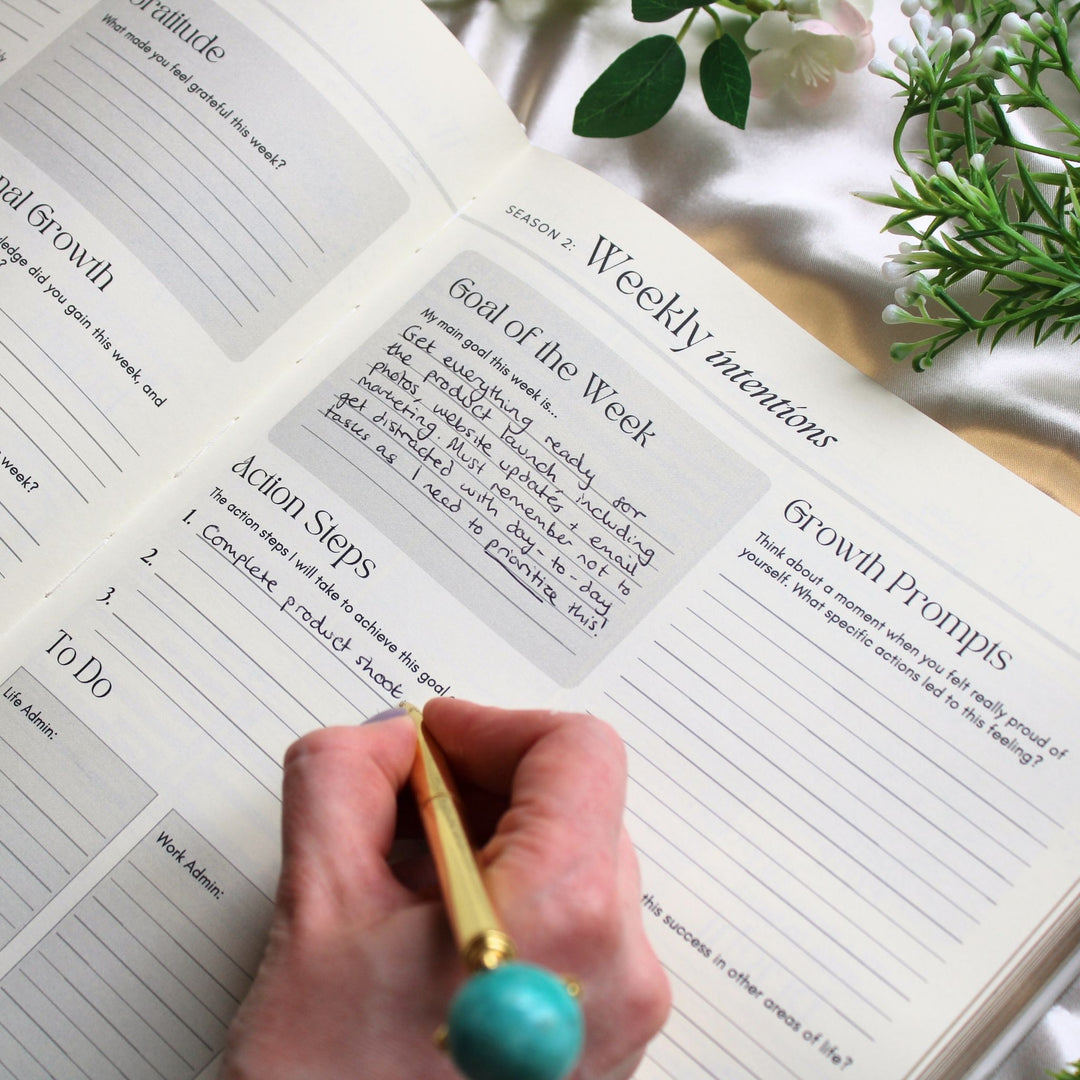 Gratitude
What made you feel grateful this week?
Growth
did you gain this week, and
week?
SEASON 2:
Weekly intentions
Goal of the Week
My main goal this week is...
Get everything ready for
the product launch, including
photos, website updates + email
marketing. Must remember not to
get distracted with day-to-day
tasks as I need to prioritize this!
Action Steps
The action steps I will take to achieve this goal
1. Complete product shoot
2.
3.
To Do
Life Admin:
Work Admin:
Growth Prompts
Think about a moment when you felt really proud of
yourself. What specific actions led to this feeling?
this success in other areas of life?